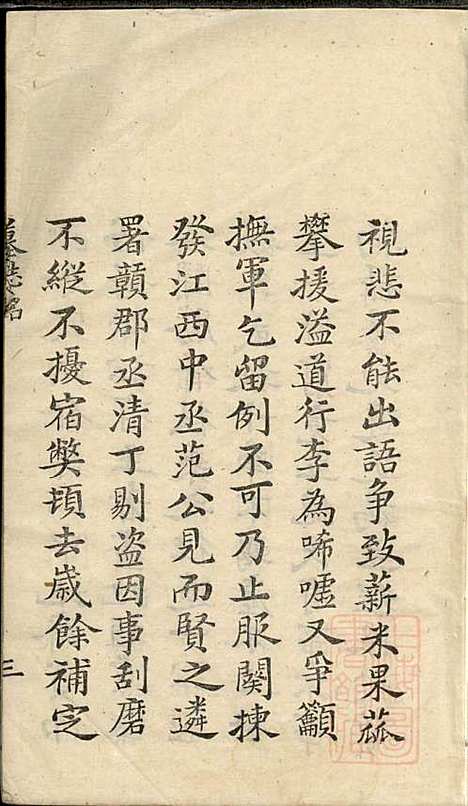 視悲不能出語争致薪米果蓏
攀援溢道行李為唏噓又爭籲
撫軍乞留例不可乃止服闋揀
發江西中丞范公見而賢之遴
署贛郡丞清丁剔盗因事刮磨
不縱不擾宿獘頃去歲餘補定
墓誌銘
三